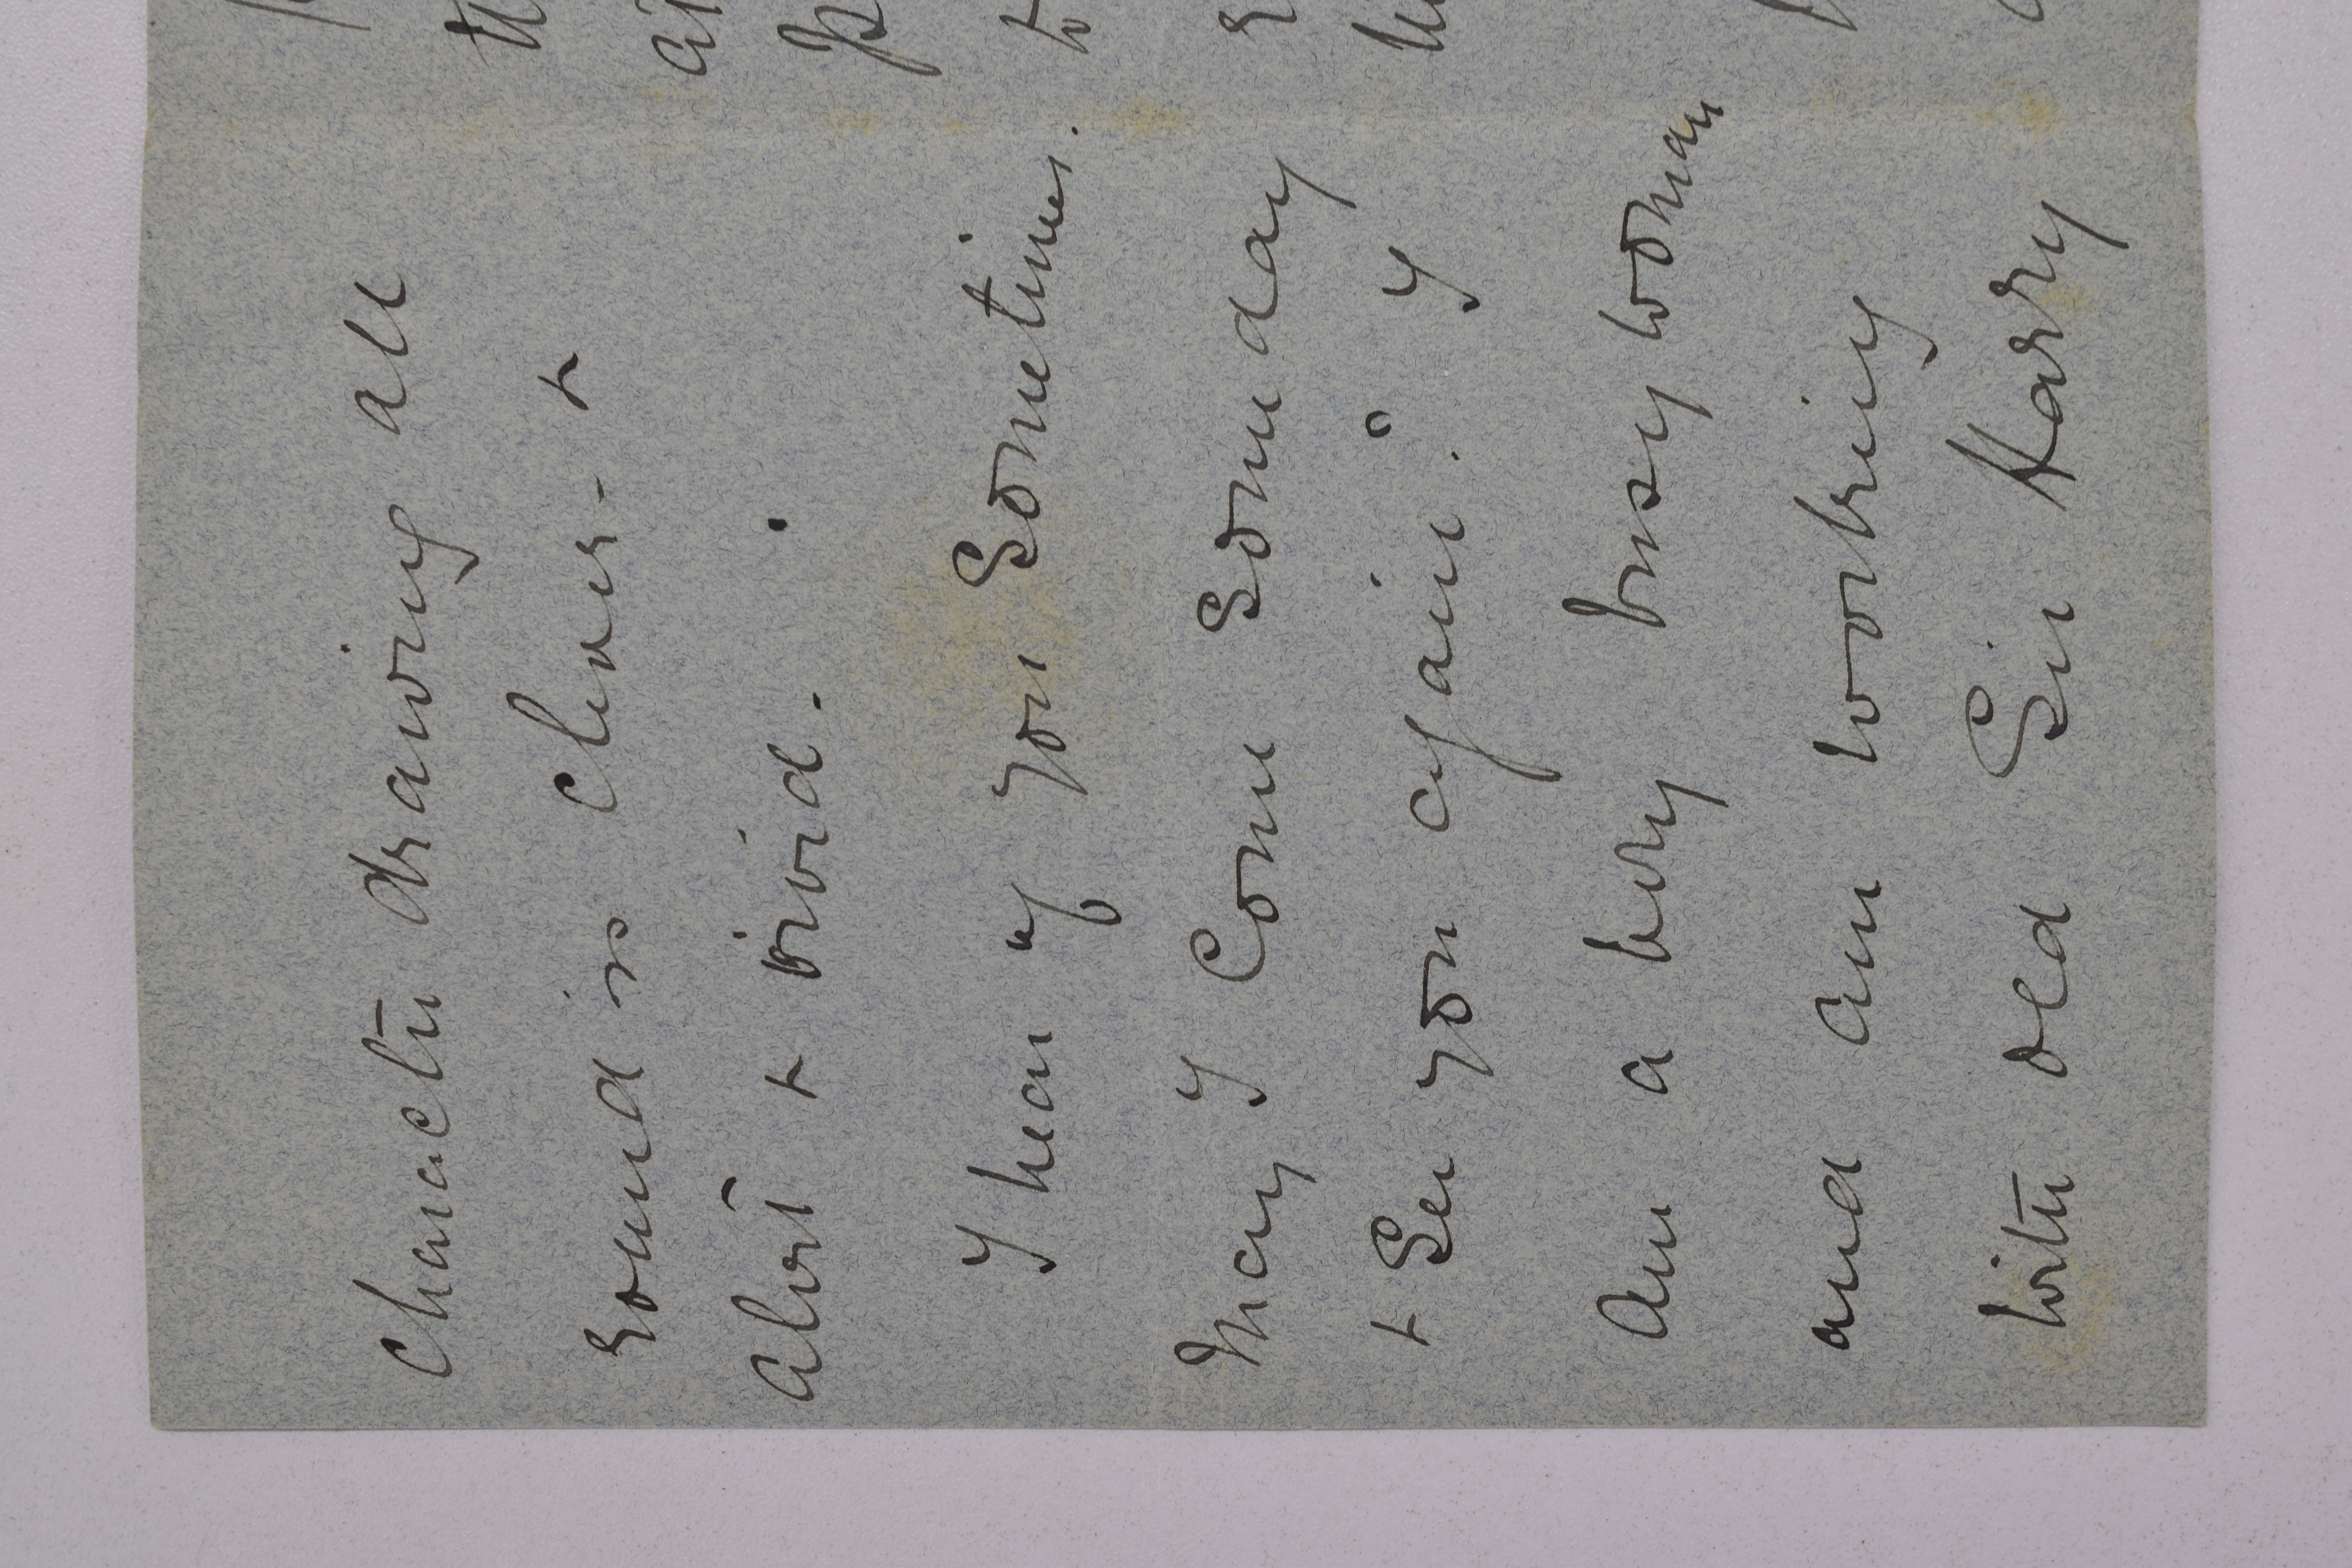 character drawing all
round is clever - &
alert & vivid -
I hear of you sometimes.
May I come someday
& see you again? I
am a very busy woman
and am working
with old Sir Harry